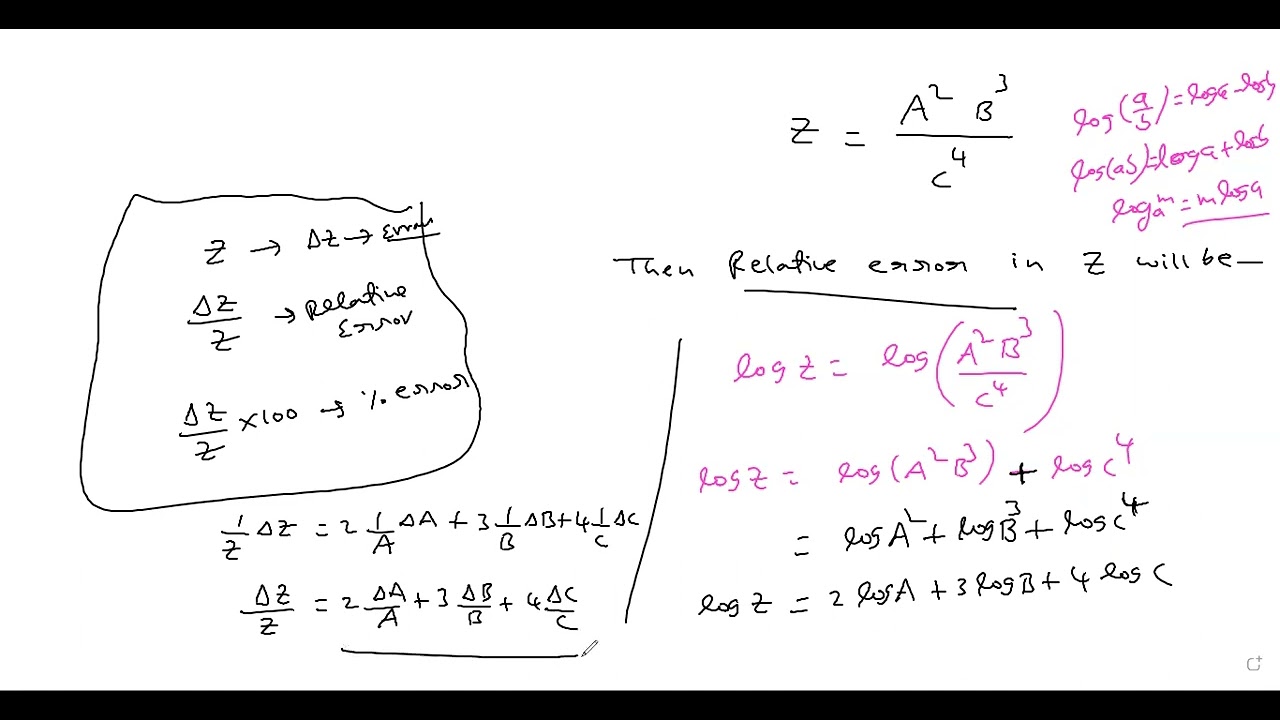 Z = A² B³ / C⁴
log(a/b) = log a - log b
log(ab) = log a + log b
log a^m = m log a
Then Relative error in Z will be —
Z → ΔZ → Error
ΔZ/Z → Relative Error
ΔZ/Z × 100 → % error
log Z = log(A² B³ / C⁴)
log Z = log(A² B³) + log C⁴
= log A² + log B³ + log C⁴
log Z = 2 log A + 3 log B + 4 log C
1/Z ΔZ = 2 1/A ΔA + 3 1/B ΔB + 4 1/C ΔC
ΔZ/Z = 2 ΔA/A + 3 ΔB/B + 4 ΔC/C